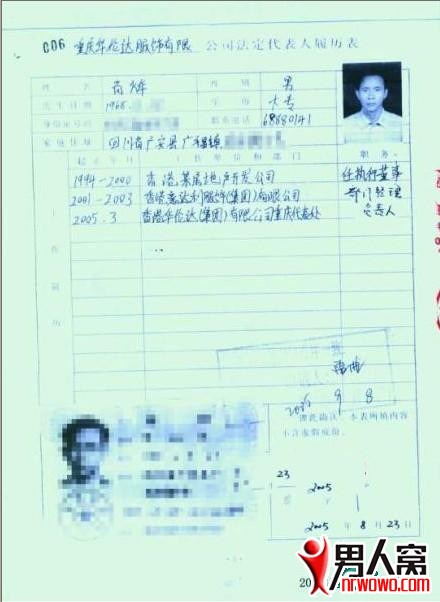 006 重庆华伦达服饰有限 公司法定代表人履历表
姓 名 肖烨 性 别 男
出生日期 1968. 学 历 大专
身份证号 联系电话 68880141
家庭住址 四川省广安县广
起止年月 工作单位和部门 职务
1994-2000 香港某房地产开发公司 任执行董事
2001-2003 (集团)有限公司 部门经理
2005.3 香港华伦达(集团)有限公司重庆代表处 负责人
工作简历
9 8
谨此确认,本表所填内容
不含虚假成份。
23
2005
2005 年 8 月 23 日
男人窝
nrwowo.com
20